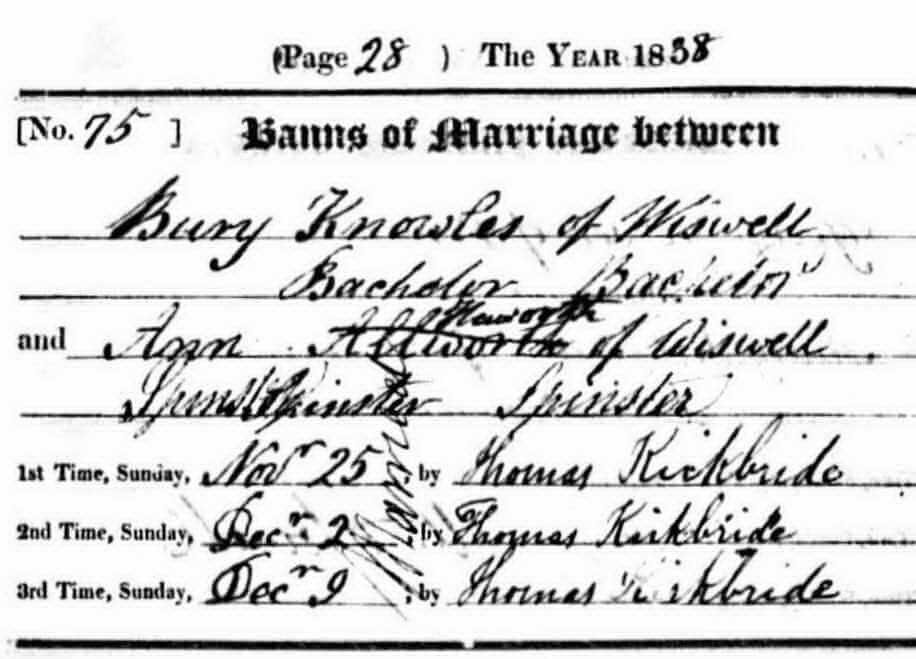 (Page 28 ) The YEAR 1838
[No. 75 ] Banns of Marriage between
Bury Knowles of Wiswell
Bachelor Bachelor
Haworth
and Ann of Wiswell
Spinster Spinster
1st Time, Sunday, Novr 25 ; by Thomas Kirkbride
2nd Time, Sunday, Decr 2 ; by Thomas Kirkbride
3rd Time, Sunday, Decr 9 ; by Thomas Kirkbride
Married